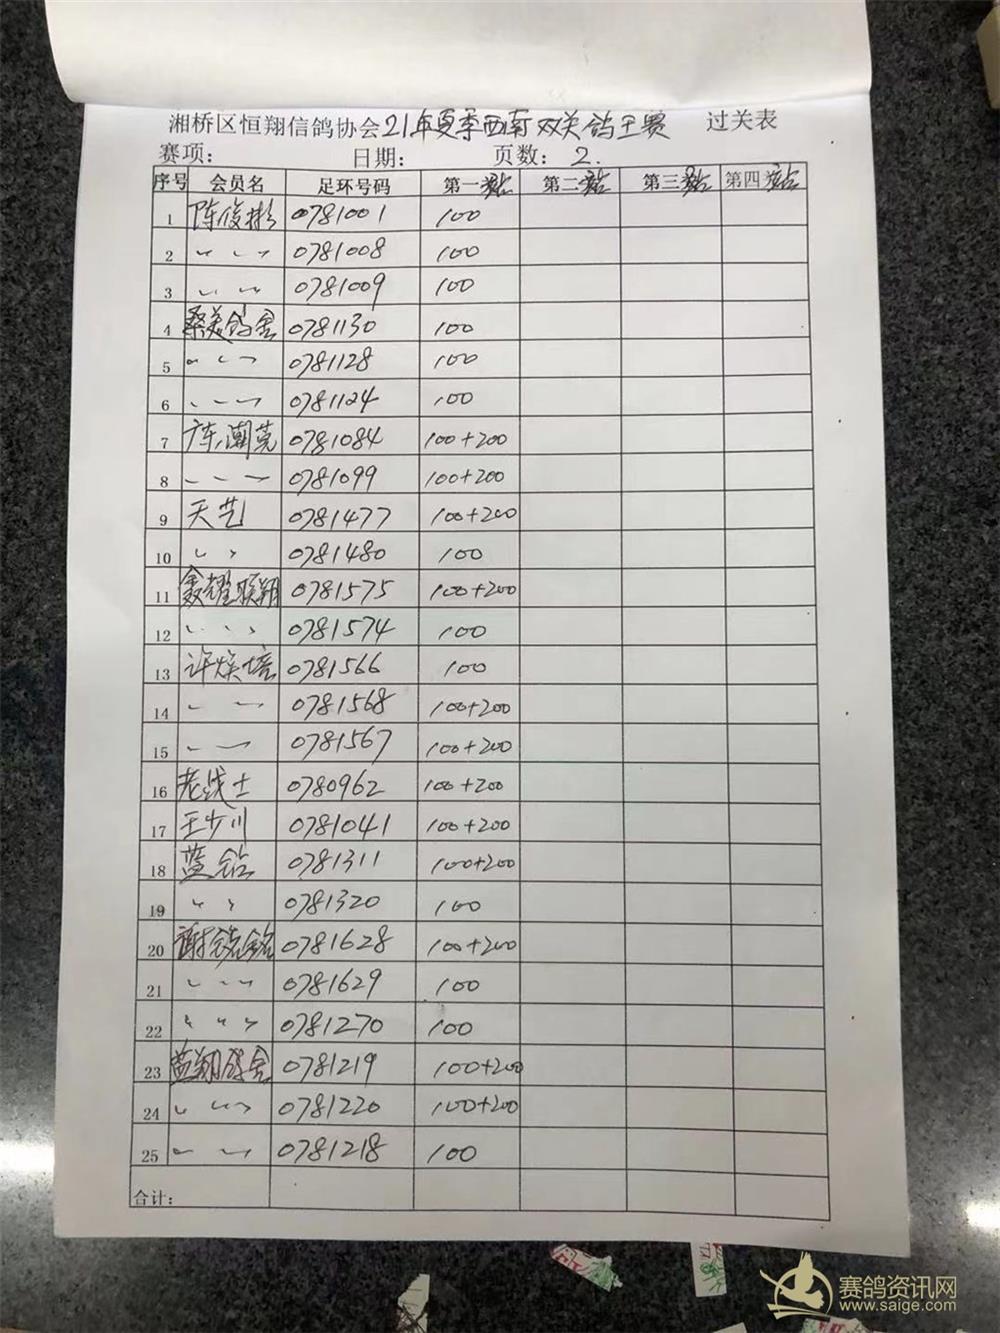 湘桥区恒翔信鸽协会21年夏季西南双关鸽王赛 过关表
赛项: 日期: 页数: 2.
序号 会员名 足环号码 第一站 第二站 第三站 第四站
1 陈俊彬 0781001 100
2 〃 〃 0781008 100
3 〃 〃 0781009 100
4 桑美鸽舍 0781130 100
5 〃 〃 0781128 100
6 〃 〃 0781124 100
7 广东潮莞 0781084 100+200
8 〃 〃 0781099 100+200
9 天艺 0781477 100+200
10 〃 〃 0781480 100
11 鑫耀联翔 0781575 100+200
12 〃 〃 0781574 100
13 许焕培 0781566 100
14 〃 〃 0781568 100+200
15 〃 〃 0781567 100+200
16 老战士 0780962 100+200
17 王少川 0781041 100+200
18 蓝钻 0781311 100+200
19 〃 〃 0781320 100
20 谢 0781628 100+200
21 〃 〃 0781629 100
22 〃 〃 0781270 100
23 蓝翔鸽舍 0781219 100+200
24 〃 〃 0781220 100+200
25 〃 〃 0781218 100
合计:
赛鸽资讯网
www.saige.com